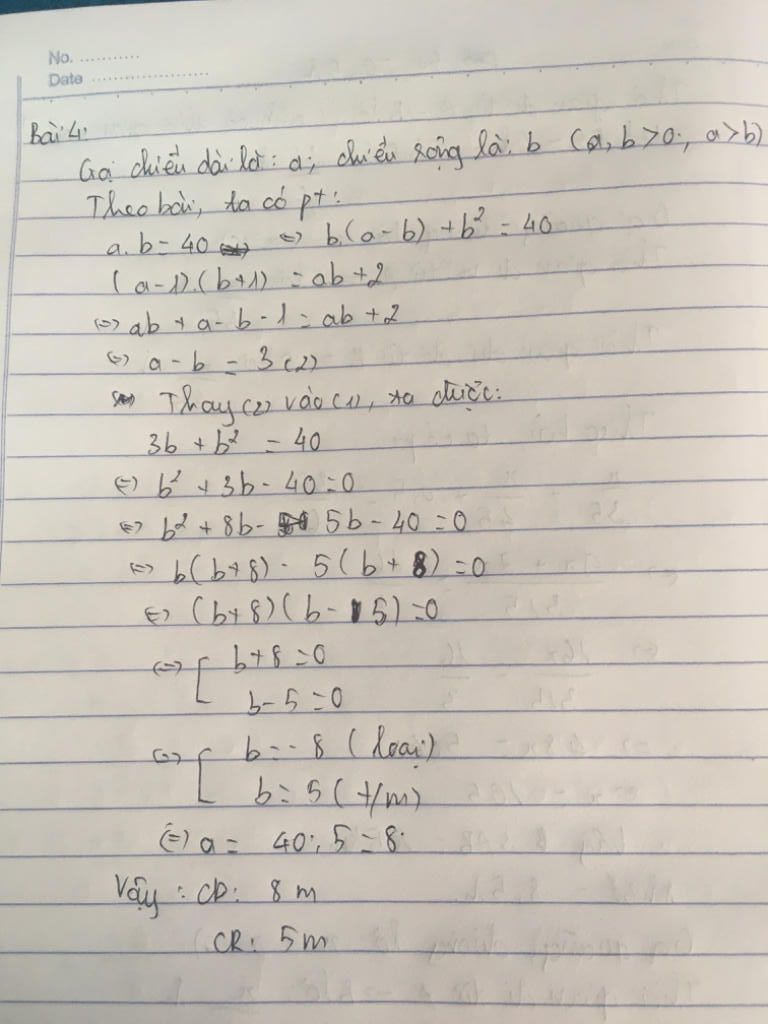 No. ...........
Date ......................
Bài 4:
Gọi chiều dài là: a; chiều rộng là: b (a, b >0; a>b)
Theo bài, ta có pt:
a.b = 40 <=> b.(a-b) + b² = 40
(a-1).(b+1) = ab+2
<=> ab + a - b - 1 = ab + 2
<=> a - b = 3 (2)
Thay (2) vào (1), ta được:
3b + b² = 40
<=> b² + 3b - 40 = 0
<=> b² + 8b - 5b - 40 = 0
<=> b(b+8) - 5(b+8) = 0
<=> (b+8)(b-5) = 0
<=> [ b+8 = 0
b-5 = 0
<=> [ b = -8 (loại)
b = 5 (t/m)
<=> a = 40 : 5 = 8.
Vậy : CD: 8 m
CR: 5m